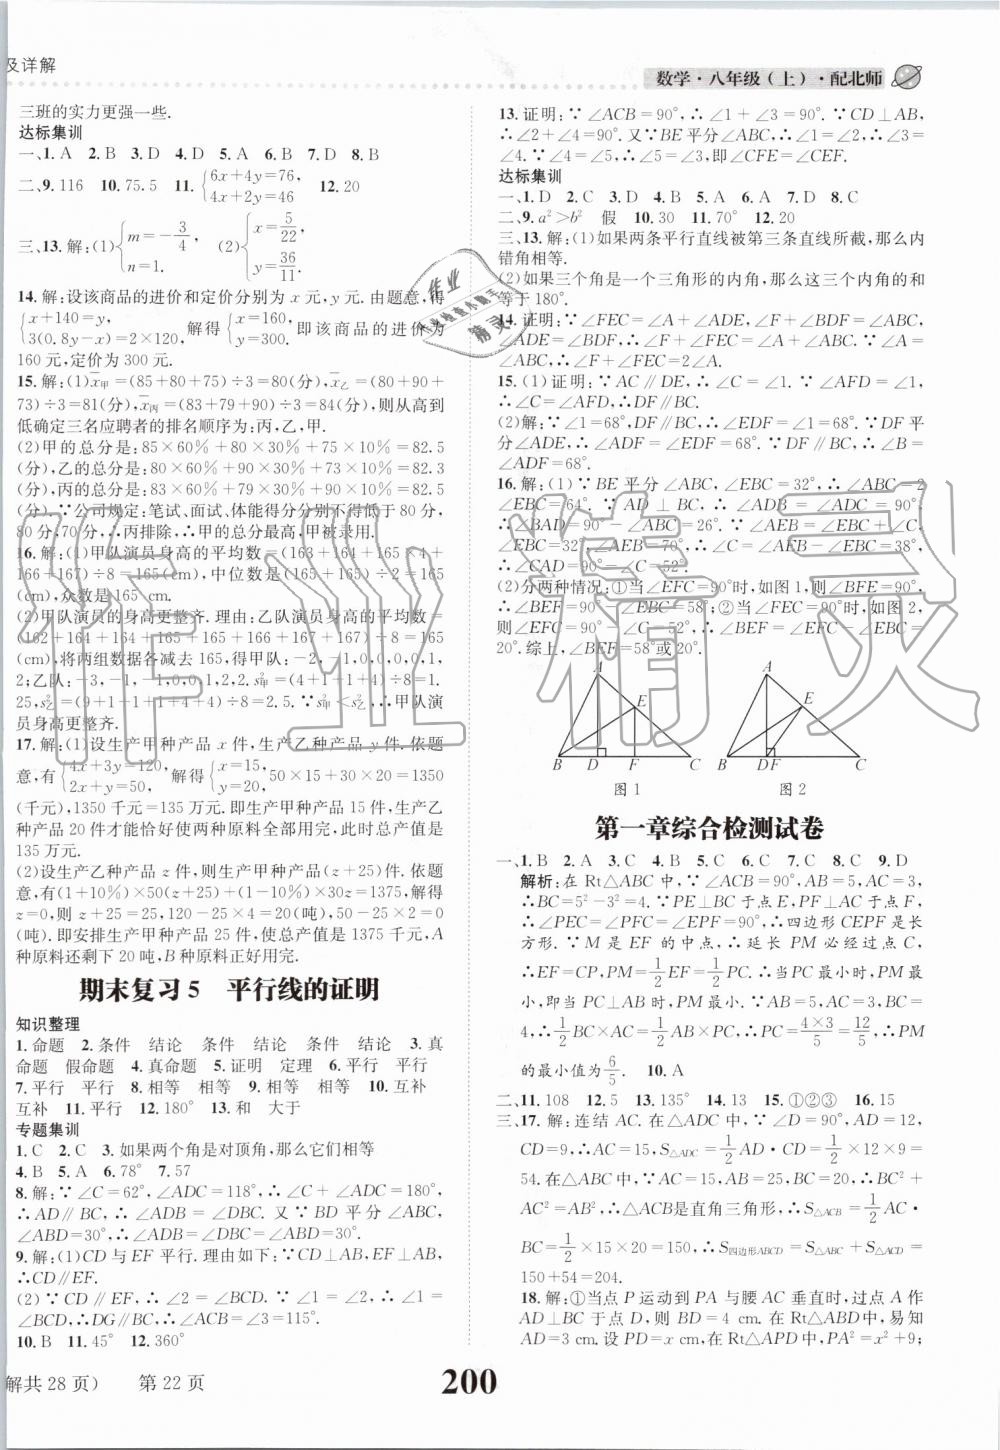 及详解
数学·八年级（上）·配北师
三班的实力更强一些.
达标集训
一、1. A 2. B 3. D 4. D 5. A 6. B 7. D 8. B
二、9. 116 10. 75.5 11. {6x+4y=76, 4x+2y=46 12. 20
三、13. 解：(1){m=-3/4, n=1. (2){x=5/22, y=36/11.
14. 解：设该商品的进价和定价分别为 x 元，y 元. 由题意，得
{x+140=y, 3(0.8y-x)=2×120, 解得{x=160, y=300, 即该商品的进价为
160 元，定价为 300 元.
15. 解：(1)x̄甲=(85+80+75)÷3=80(分)，x̄乙=(80+90+
73)÷3=81(分)，x̄丙=(83+79+90)÷3=84(分)，则从高到
低确定三名应聘者的排名顺序为：丙，乙，甲.
(2)甲的总分是：85×60%+80×30%+75×10%=82.5
(分)，乙的总分是：80×60%+90×30%+73×10%=82.3
(分)，丙的总分是：83×60%+79×30%+90×10%=82.5
(分)，∵公司规定：笔试、面试、体能得分分别不得低于 80 分，
80 分，70 分，∴丙排除，∴甲的总分最高，甲被录用.
16. 解：(1)甲队演员身高的平均数：(163+164+165+165+
166+167)÷8=165(cm)，中位数是(165+165)÷2=165
(cm)，众数是 165 cm.
(2)甲队演员的身高更整齐. 理由：乙队演员身高的平均数=
(162+164+164+165+165+166+167+167)÷8=165
(cm)，将两组数据各减去 165，得甲队：-2，-1，0，0，0，0，1，
2；乙队：-3，-1，-1，0，0，1，2，2. s²甲=(4+1+1+4)÷8=1.
25，s²乙=(9+1+1+1+4+4)÷8=2.5，∵s²甲<s²乙，∴甲队演
员身高更整齐.
17. 解：(1)设生产甲种产品 x 件，生产乙种产品 y 件. 依题
意，有{4x+3y=120, 2x+y=50, 解得{x=15, y=20, 50×15+30×20=1350
(千元)，1350 千元=135 万元. 即生产甲种产品 15 件，生产乙
种产品 20 件才能恰好使两种原料全部用完，此时总产值是
135 万元.
(2)设生产乙种产品 z 件，则生产甲种产品(z+25)件. 依题意，
有(1+10%)×50(z+25)+(1-10%)×30z=1375，解得
z=0，则 z+25=25，120-25×4=20(吨)，50-25×2=0
(吨). 即安排生产甲种产品 25 件，使总产值是 1375 千元，A
种原料还剩下 20 吨，B 种原料正好用完.
期末复习 5 平行线的证明
知识整理
1. 命题 2. 条件 结论 条件 结论 条件 结论 3. 真
命题 假命题 4. 真命题 5. 证明 定理 6. 平行 平行
7. 平行 平行 8. 相等 相等 9. 相等 相等 10. 互补
互补 11. 平行 12. 180° 13. 和 大于
专题集训
1. C 2. C 3. 如果两个角是对顶角，那么它们相等
4. B 5. A 6. 78° 7. 57
8. 解：∵∠C=62°，∠ADC=118°，∴∠C+∠ADC=180°，
∴AD∥BC，∴∠ADB=∠DBC. 又∵BD 平分∠ABC，
∠ABD=30°，∴∠ADB=∠DBC=∠ABD=30°.
9. 解：(1)CD 与 EF 平行. 理由如下：∵CD⊥AB，EF⊥AB，
∴CD∥EF.
(2)∵CD∥EF，∴∠2=∠BCD. ∵∠1=∠2，∴∠1=
∠BCD，∴DG∥BC，∴∠ACB=∠3=115°.
10. B 11. 45° 12. 360°
13. 证明：∵∠ACB=90°，∴∠1+∠3=90°. ∵CD⊥AB，
∴∠2+∠4=90°. 又∵BE 平分∠ABC，∴∠1=∠2，∴∠3=
∠4. ∵∠4=∠5，∴∠3=∠5，即∠CFE=∠CEF.
达标集训
一、1. D 2. C 3. B 4. B 5. A 6. A 7. D 8. C
二、9. a²>b² 假 10. 30 11. 70° 12. 20
三、13. 解：(1)如果两条平行直线被第三条直线所截，那么内
错角相等.
(2)如果三个角是一个三角形的内角，那么这三个角的和
等于 180°.
14. 证明：∵∠FEC=∠A+∠ADE，∠F+∠BDF=∠ABC，
∠ADE=∠BDF，∴∠F+∠FEC=∠A+∠ABC. ∵∠A=
∠ABC，∴∠F+∠FEC=2∠A.
15. (1)证明：∵AC∥DE，∴∠C=∠1. ∵∠AFD=∠1，
∴∠C=∠AFD，∴DF∥BC.
(2)解：∵∠1=68°，DF∥BC，∴∠EDF=∠1=68°. ∵DF 平
分∠ADE，∴∠ADF=∠EDF=68°. ∵DF∥BC，∴∠B=
∠ADF=68°.
16. 解：(1)∵BE 平分∠ABC，∠EBC=32°，∴∠ABC=2
∠EBC=64°. ∵AD⊥BC，∴∠ADB=∠ADC=90°，
∴∠BAD=90°-∠ABC=26°. ∵∠AEB=∠EBC+∠C，
∠EBC=32°，∠AEB=70°，∴∠C=∠AEB-∠EBC=38°，
∴∠CAD=90°-∠C=52°.
(2)分两种情况：①当∠EFC=90°时，如图 1，则∠BFE=90°，
∴∠BEF=90°-∠EBC=58°；②当∠FEC=90°时，如图 2，
则∠EFC=90°-∠C=52°，∴∠BEF=∠EFC-∠EBC=
20°. 综上，∠BEF=58°或 20°.
A E B D F C
图 1
A E B D F C
图 2
第一章综合检测试卷
一、1. B 2. A 3. C 4. B 5. C 6. C 7. C 8. C 9. D
解析：在 Rt△ABC 中，∵∠ACB=90°，AB=5，AC=3，
∴BC=5²-3²=4. ∵PE⊥BC 于点 E，PF⊥AC 于点 F，
∴∠PEC=∠PFC=∠ECF=90°，∴四边形 CEPF 是长
方形. ∵M 是 EF 的中点，∴延长 PM 必经过点 C，
∴EF=CP，PM=1/2EF=1/2PC，∴当 PC 最小时，PM 最
小，即当 PC⊥AB 时，PM 最小，∵AB=5，AC=3，BC=
4，∴1/2BC×AC=1/2AB×PC，∴PC=4×3/5=12/5，∴PM
的最小值为6/5. 10. A
二、11. 108 12. 5 13. 135° 14. 10 15. ①②③ 16. 15
三、17. 解：连结 AC. 在△ADC 中，∵∠D=90°，AD=12，
CD=9，∴AC=15，S△ADC=1/2AD·CD=1/2×12×9=
54. 在△ABC 中，∵AC=15，AB=25，BC=20，∴BC²+
AC²=AB²，∴△ACB 是直角三角形，∴S△ACB=1/2AC·
BC=1/2×15×20=150，∴S四边形ABCD=S△ABC+S△ACD=
150+54=204.
18. 解：①当点 P 运动到 PA 与腰 AC 垂直时，过点 A 作
AD⊥BC 于点 D，则 BD=4 cm. 在 Rt△ABD 中，易知
AD=3 cm. 设 PD=x cm，在 Rt△APD 中，AP²=x²+9；
解共 28 页） 第 22 页
200
作业精灵